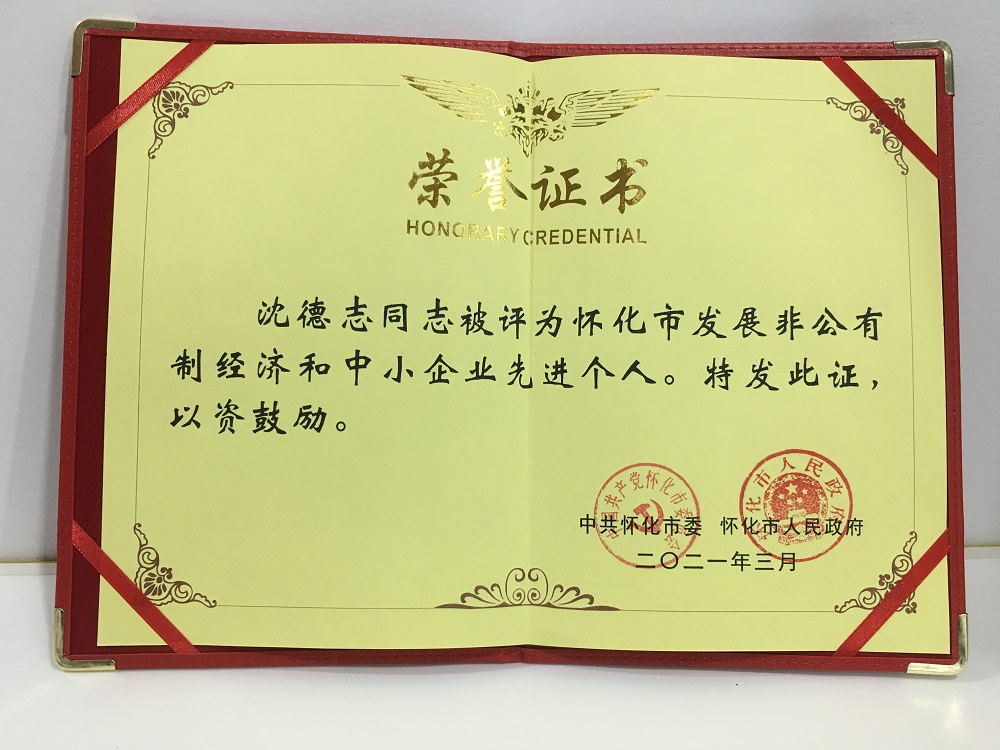 荣誉证书
HONORARY CREDENTIAL
沈德志同志被评为怀化市发展非公有
制经济和中小企业先进个人。特发此证，
以资鼓励。
中国共产党怀化市委员会
怀化市人民政府
中共怀化市委 怀化市人民政府
二〇二一年三月